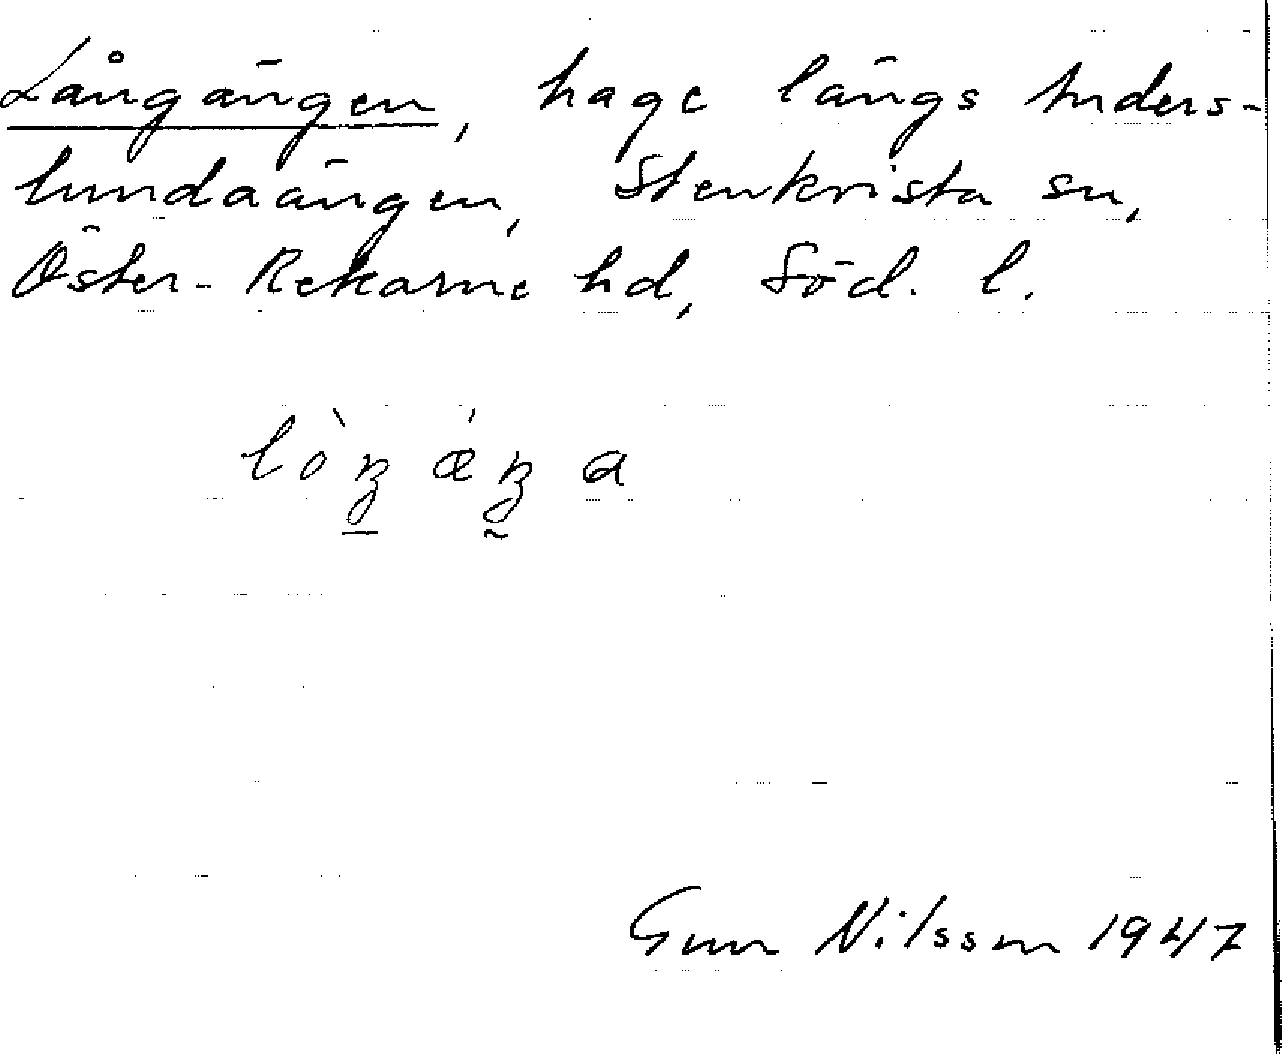 Långängen, hage längs Anders-
lundaängen, Stenkvista sn,
Öster-Rekarne hd, Söd. l.
lòŋ ǽŋ a
Gun Nilsson 1947